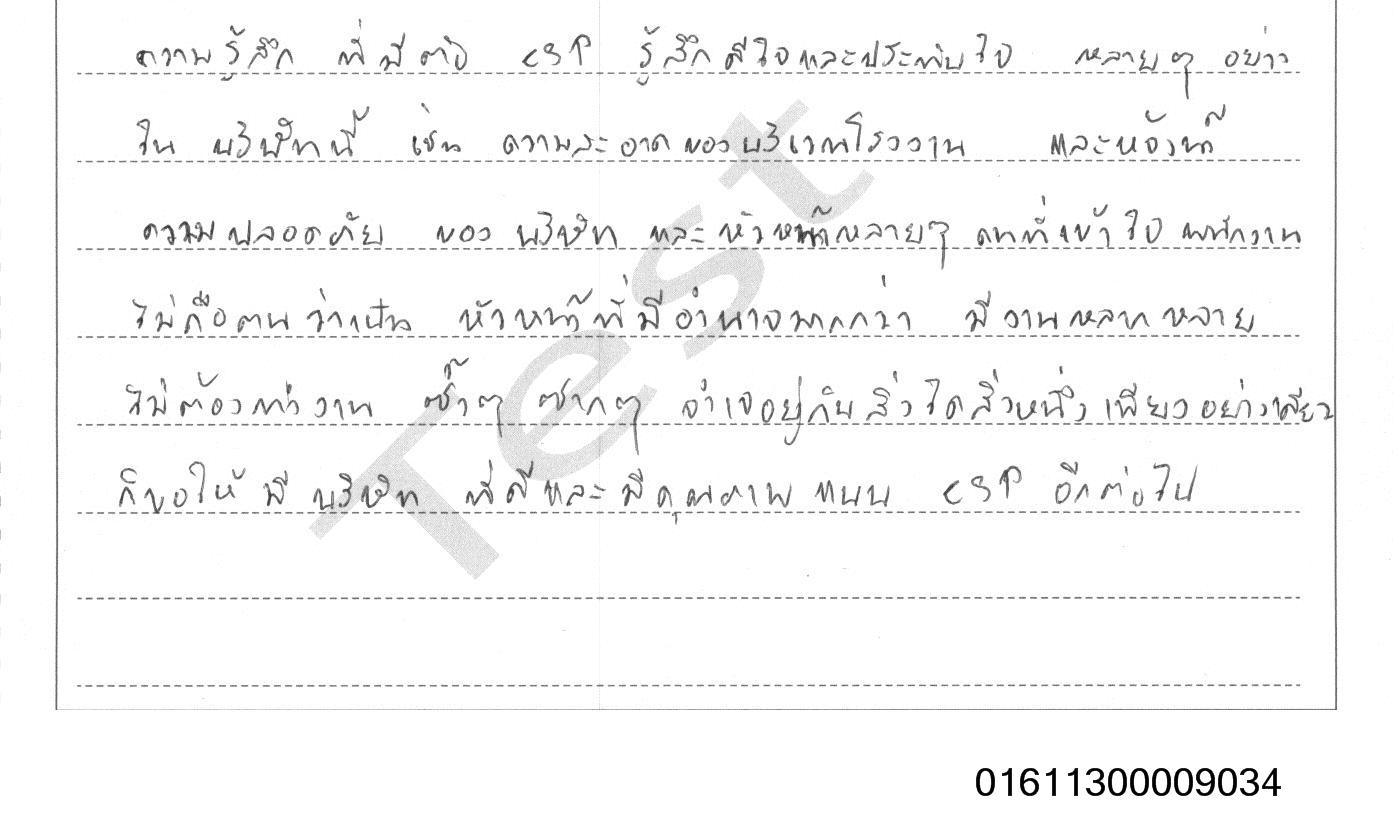 ความรู้สึก ที่มีต่อ CSP รู้สึกดีใจและประทับใจ หลายๆ อย่าง
ใน บริษัทนี้ เช่น ความสะอาดของบริเวณโรงงาน และห้องน้ำ
ความปลอดภัย ของ บริษัท และ หัวหน้าหลายๆ คนที่เข้าใจ พนักงาน
ไม่ถือตนว่าเป็น หัวหน้าที่มีอำนาจมากกว่า มีงานหลากหลาย
ไม่ต้องทำงาน ซ้ำๆ ซากๆ จำเจอยู่กับสิ่งใดสิ่งหนึ่ง เพียงอย่างเดียว
ก็ขอให้ มี บริษัท ที่ดีและ มีคุณภาพ แบบ CSP อีกต่อไป
Test
01611300009034